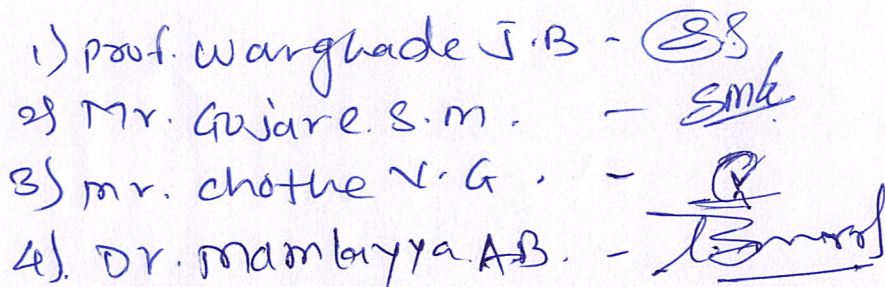 1) Prof. Warghade J.B -
2) Mr. Gujare. S. m. -
3) mr. chothe V. G. -
4). Dr. Mambayya A.B. -